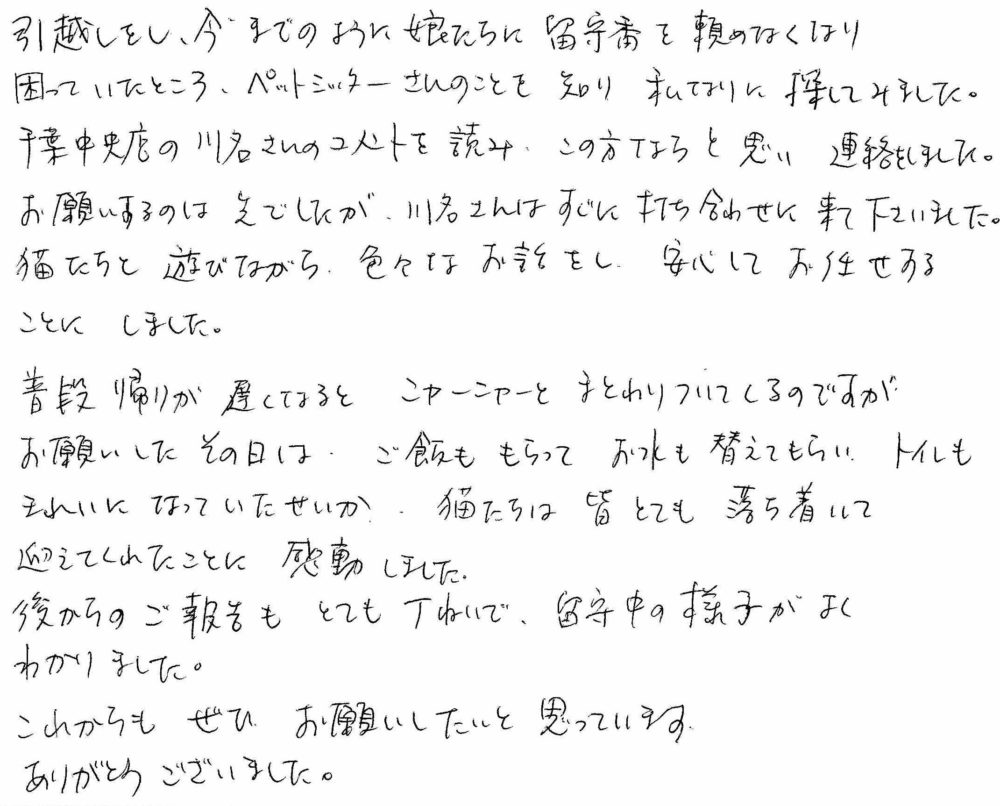 引越しをし、今までのように娘たちに留守番を頼めなくなり
困っていたところ、ペットシッターさんのことを知り私なりに探してみました。
千葉中央店の川名さんのコメントを読み、この方ならと思い連絡をしました。
お願いするのは先でしたが、川名さんはすぐに打ち合わせに来て下さいました。
猫たちと遊びながら、色々なお話をし、安心してお任せする
ことにしました。
普段帰りが遅くなるとニャーニャーとまとわりついてくるのですが
お願いしたその日は、ご飯ももらってお水も替えてもらい、トイレも
きれいになっていたせいか、猫たちは皆とても落ち着いて
迎えてくれたことに感動しました。
後からのご報告もとても丁ねいで、留守中の様子がよく
わかりました。
これからもぜひお願いしたいと思っています。
ありがとうございました。